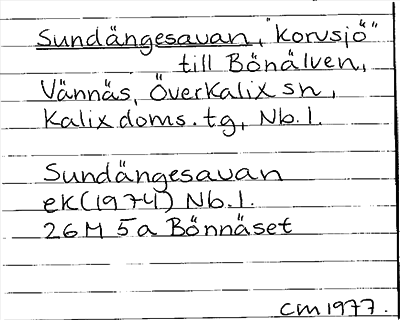 Sundängesavan, "korvsjö"
till Bönälven,
Vännäs, Överkalix sn,
Kalix doms. tg, Nb. l.
Sundängesavan
ek (1974) Nb. l.
26M 5a Bönnäset
CM 1977.